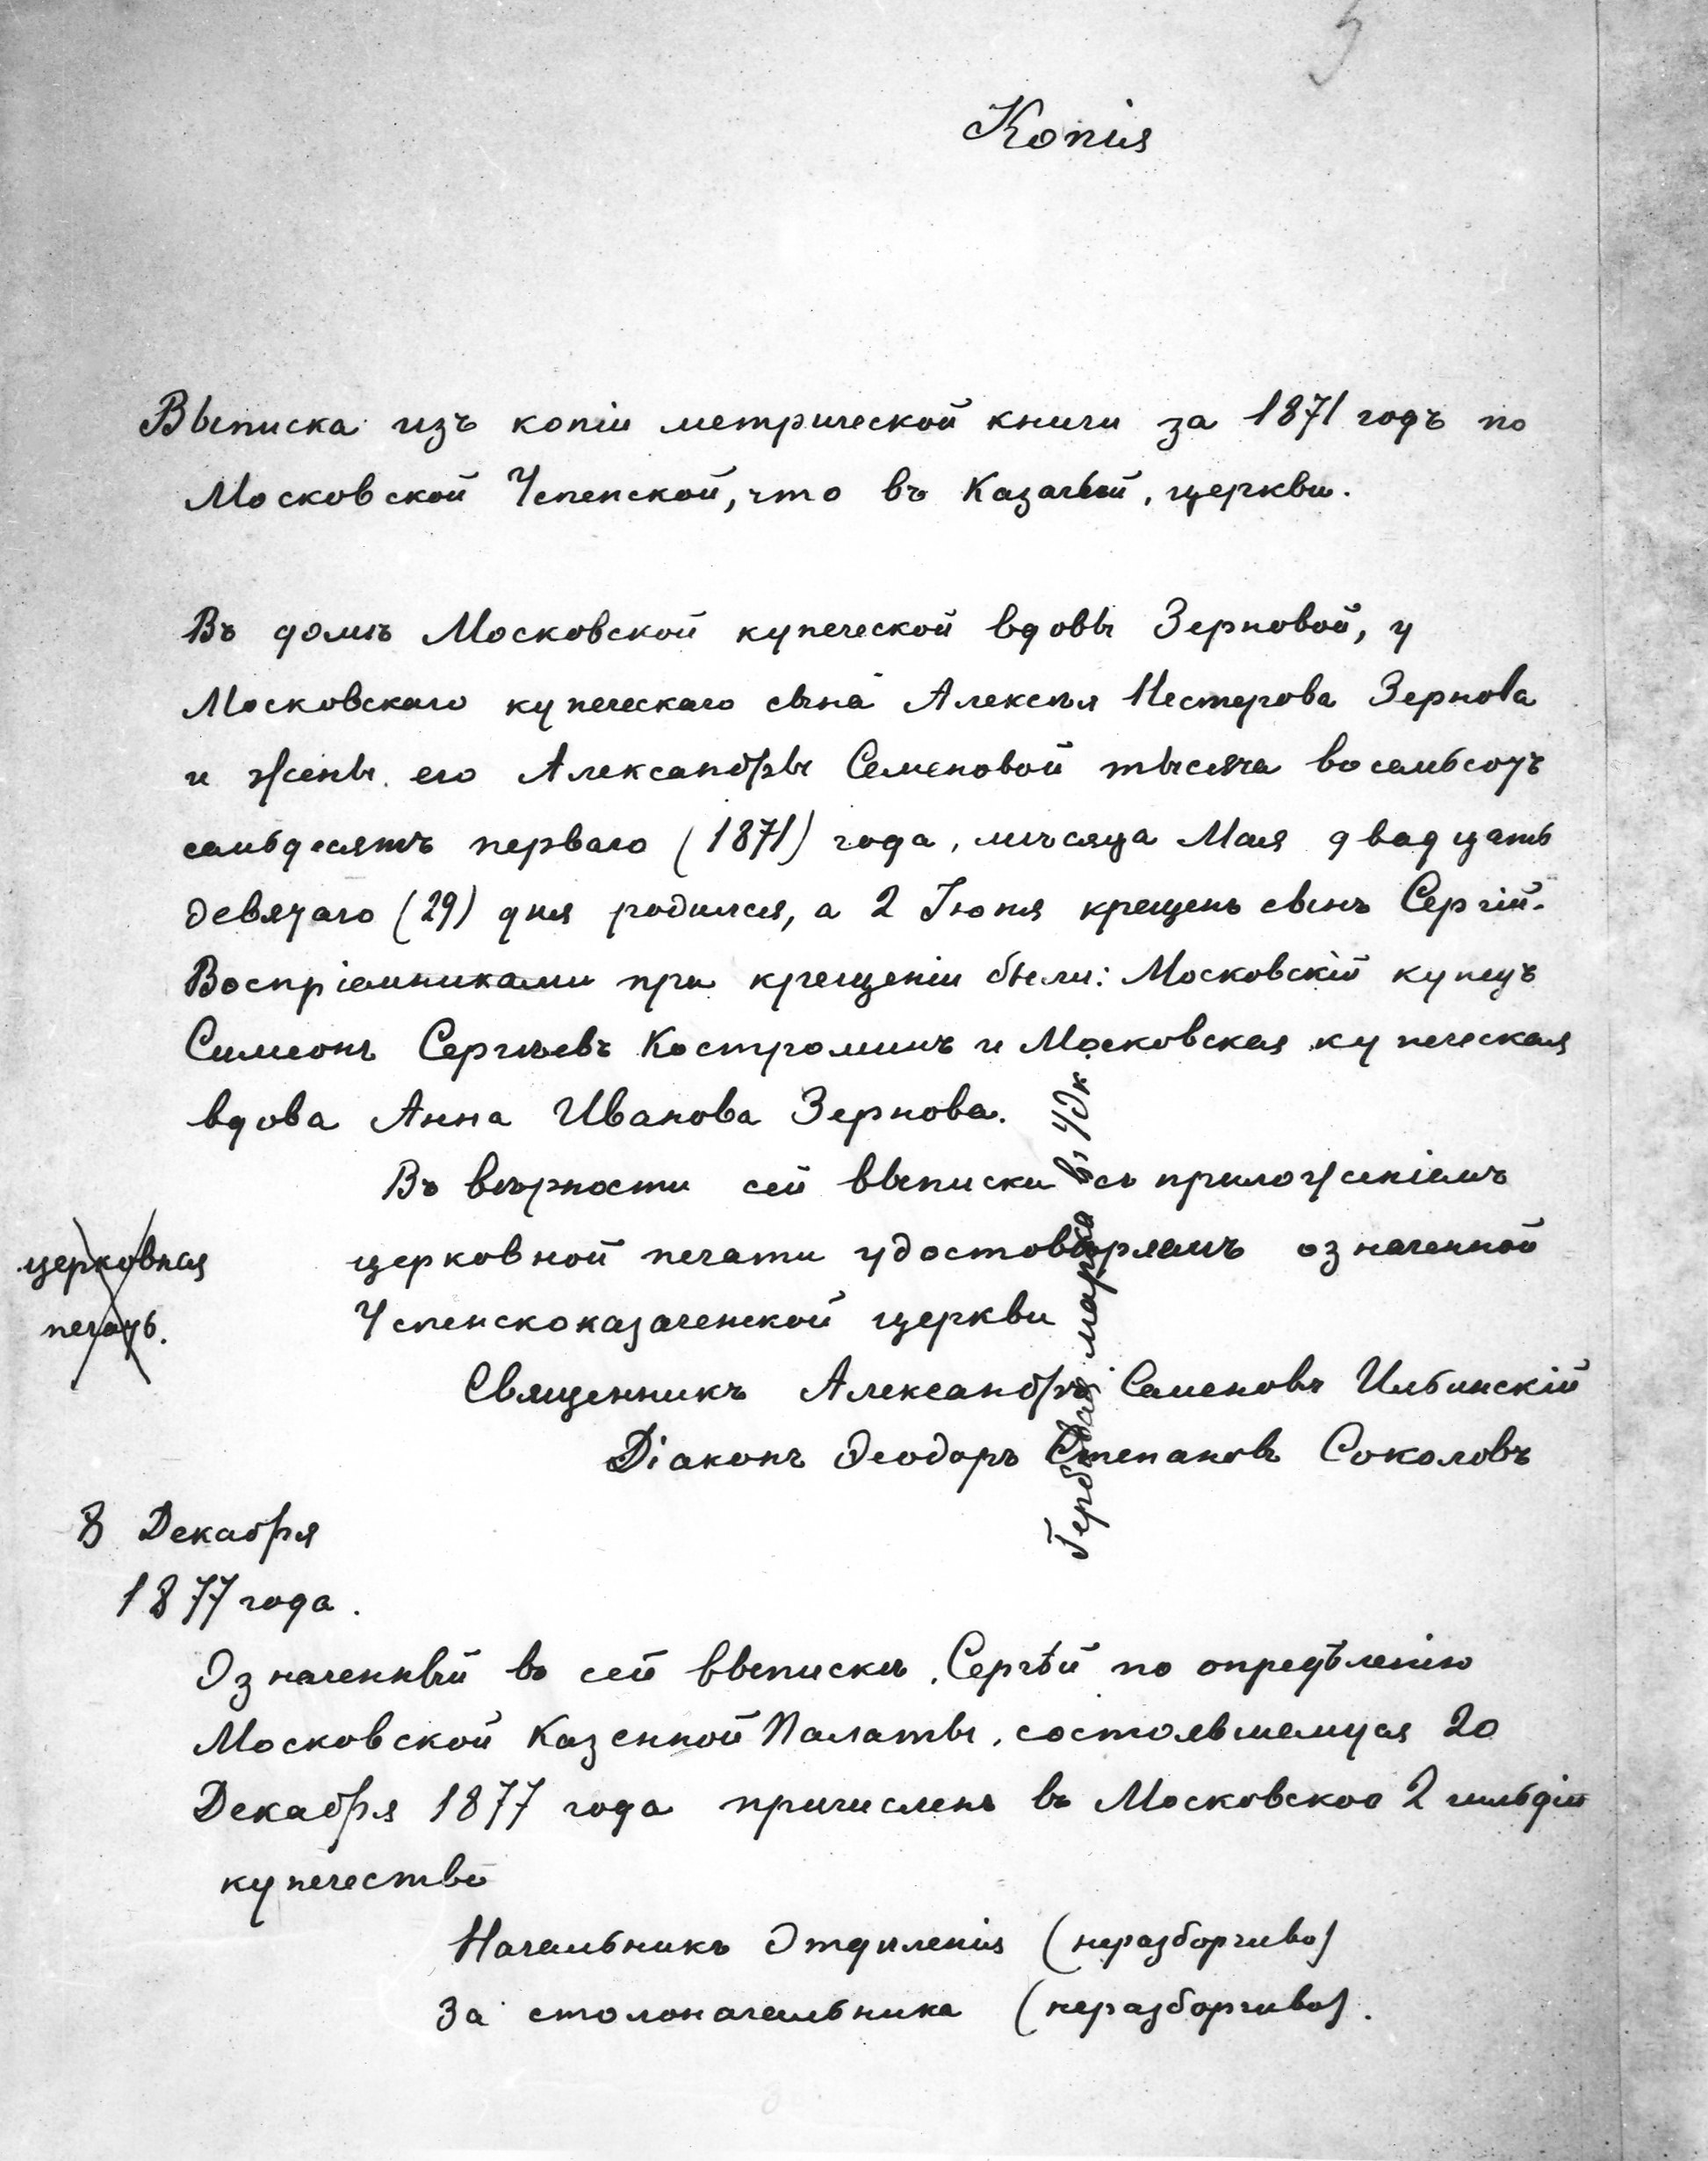 Копія
Выписка изъ копіи метрической книги за 1871 годъ по
Московской Успенской, что въ Казачьей, церкви.
Въ домѣ Московской купеческой вдовы Зерновой, у
Московскаго купеческаго сына Алексѣя Нестерова Зернова
и жены его Александры Семеновой тысяча восемьсотъ
семьдесятъ перваго (1871) года, мѣсяца Мая двадцать
девятаго (29) дня родился, а 2 Іюня крещенъ сынъ Сергій.
Воспріемниками при крещеніи были: Московскій купецъ
Симеонъ Сергѣевъ Костроминъ и Московская купеческая
вдова Анна Иванова Зернова.
Въ вѣрности сей выписки съ приложеніемъ
церковной печати удостовѣряемъ означенной
Успенскоказаченской церкви
церковная
печать.
Гербовая марка въ 40 к
Священникъ Александръ Семеновъ Ильинскій
Діаконъ Ѳеодоръ Степановъ Соколовъ
8 Декабря
1877 года.
Означенный въ сей выпискѣ, Сергѣй по опредѣленію
Московской Казенной Палаты, состоявшемуся 20
Декабря 1877 года причисленъ въ Московское 2 гильдіи
купечество
Начальникъ Отдѣленія (неразборчиво)
За столоначальника (неразборчиво).